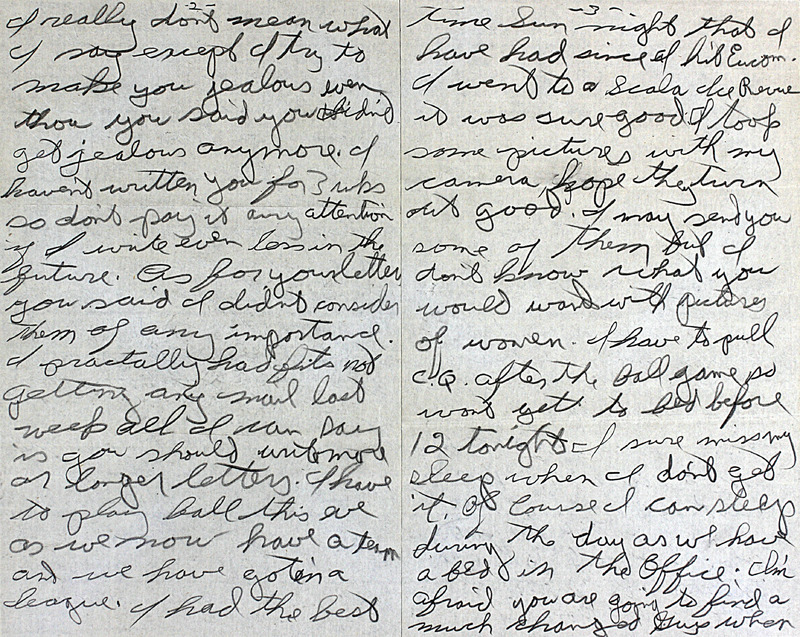 -2-
I really don't mean what
I say except I try to
make you jealous even
thou you said you didn't
get jealous anymore. I
haven't written you for 3 wks
so don't pay it any attention
if I write even less in the
future. As for your letters
you said I didn't consider
them of any importance.
I practally had fits not
getting any mail last
week all I can say
is you should write more
or longer letters. I have
to play ball this eve
as we now have a team
and we have gotten a
league. I had the best
-3-
time Sun night that I
have had since I hit Eucom.
I went to a Scala Revue
it was sure good. I took
some pictures with my
camera, hope they turn
out good. I may send you
some of them but I
don't know what you
would want with pictures
of women. I have to pull
C.Q. after the ball game so
won't get to bed before
12 tonight I sure miss my
sleep when I don't get
it. Of course I can sleep
during the day as we have
a bed in the Office. I'm
afraid you are going to find a
much changed guy when